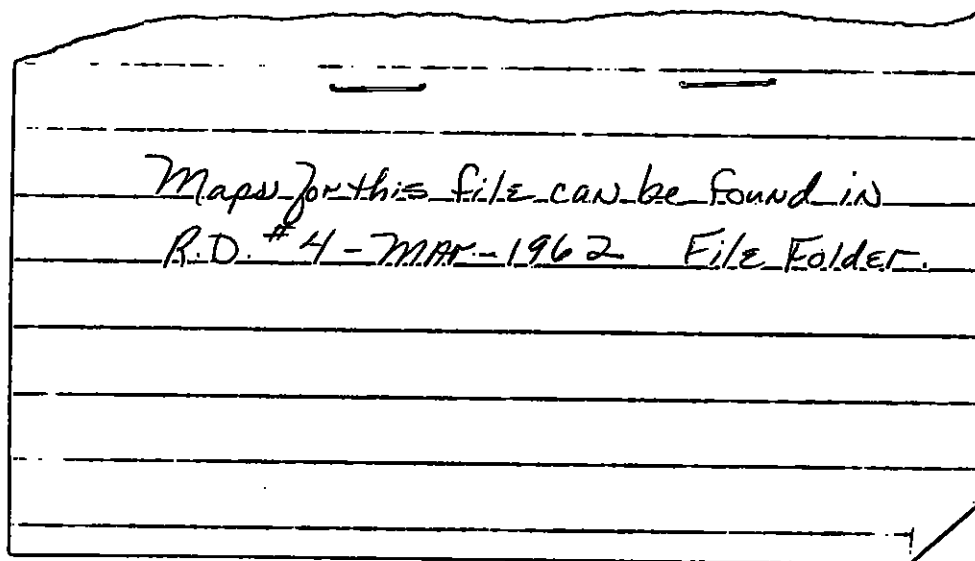 Maps for this file can be found in
R.D. #4 - MAR - 1962 File Folder.